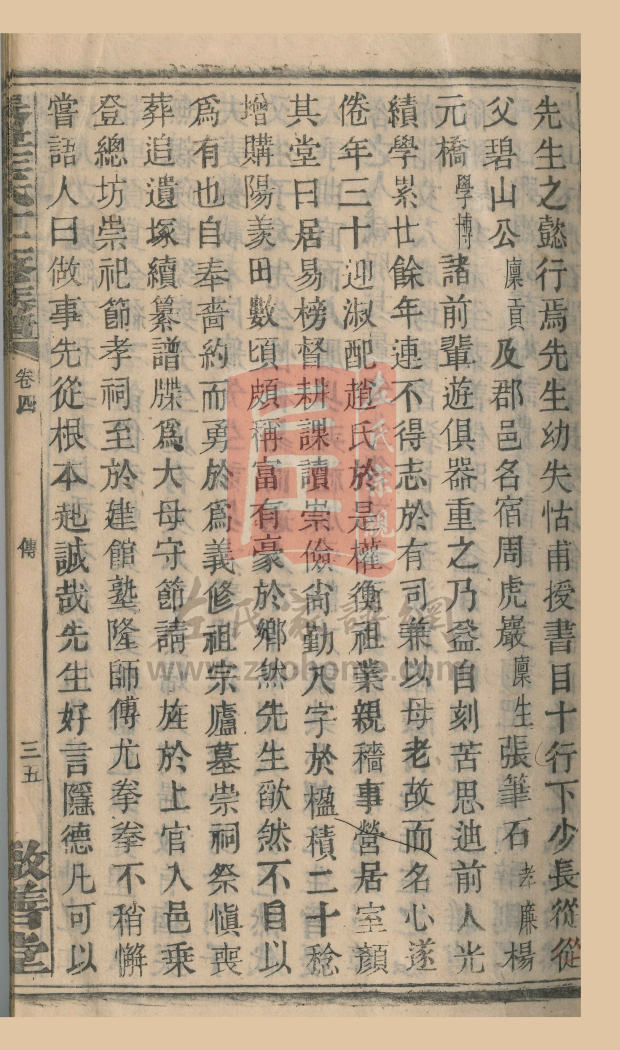 先生之懿行焉先生幼失怙甫授書目十行下少長從從
父碧山公廩貢及郡邑名宿周虎巖廩生張筆石孝廉楊
元橋學博諸前輩遊俱器重之乃益自刻苦思迪前人光
績學累廿餘年連不得志於有司兼以母老故而名心遂
倦年三十迎淑配趙氏於是權衡祖業親穡事營居室顏
其堂曰居易榜督耕課讀崇儉尚勤八字於楹積二十稔
增購陽羨田數頃頗稱富有豪於鄉然先生欿然不自以
為有也自奉嗇約而勇於為義修祖宗廬墓崇祠祭慎喪
葬追遺塚續纂譜牒為大母守節請旌於上官入邑乘
登總坊崇祀節孝祠至於建館塾隆師傅尤拳拳不稍懈
嘗語人曰做事先從根本起誠哉先生好言隱德凡可以
卷四
傳
三五
敦善堂
左氏家譜網
www.zuohome.com